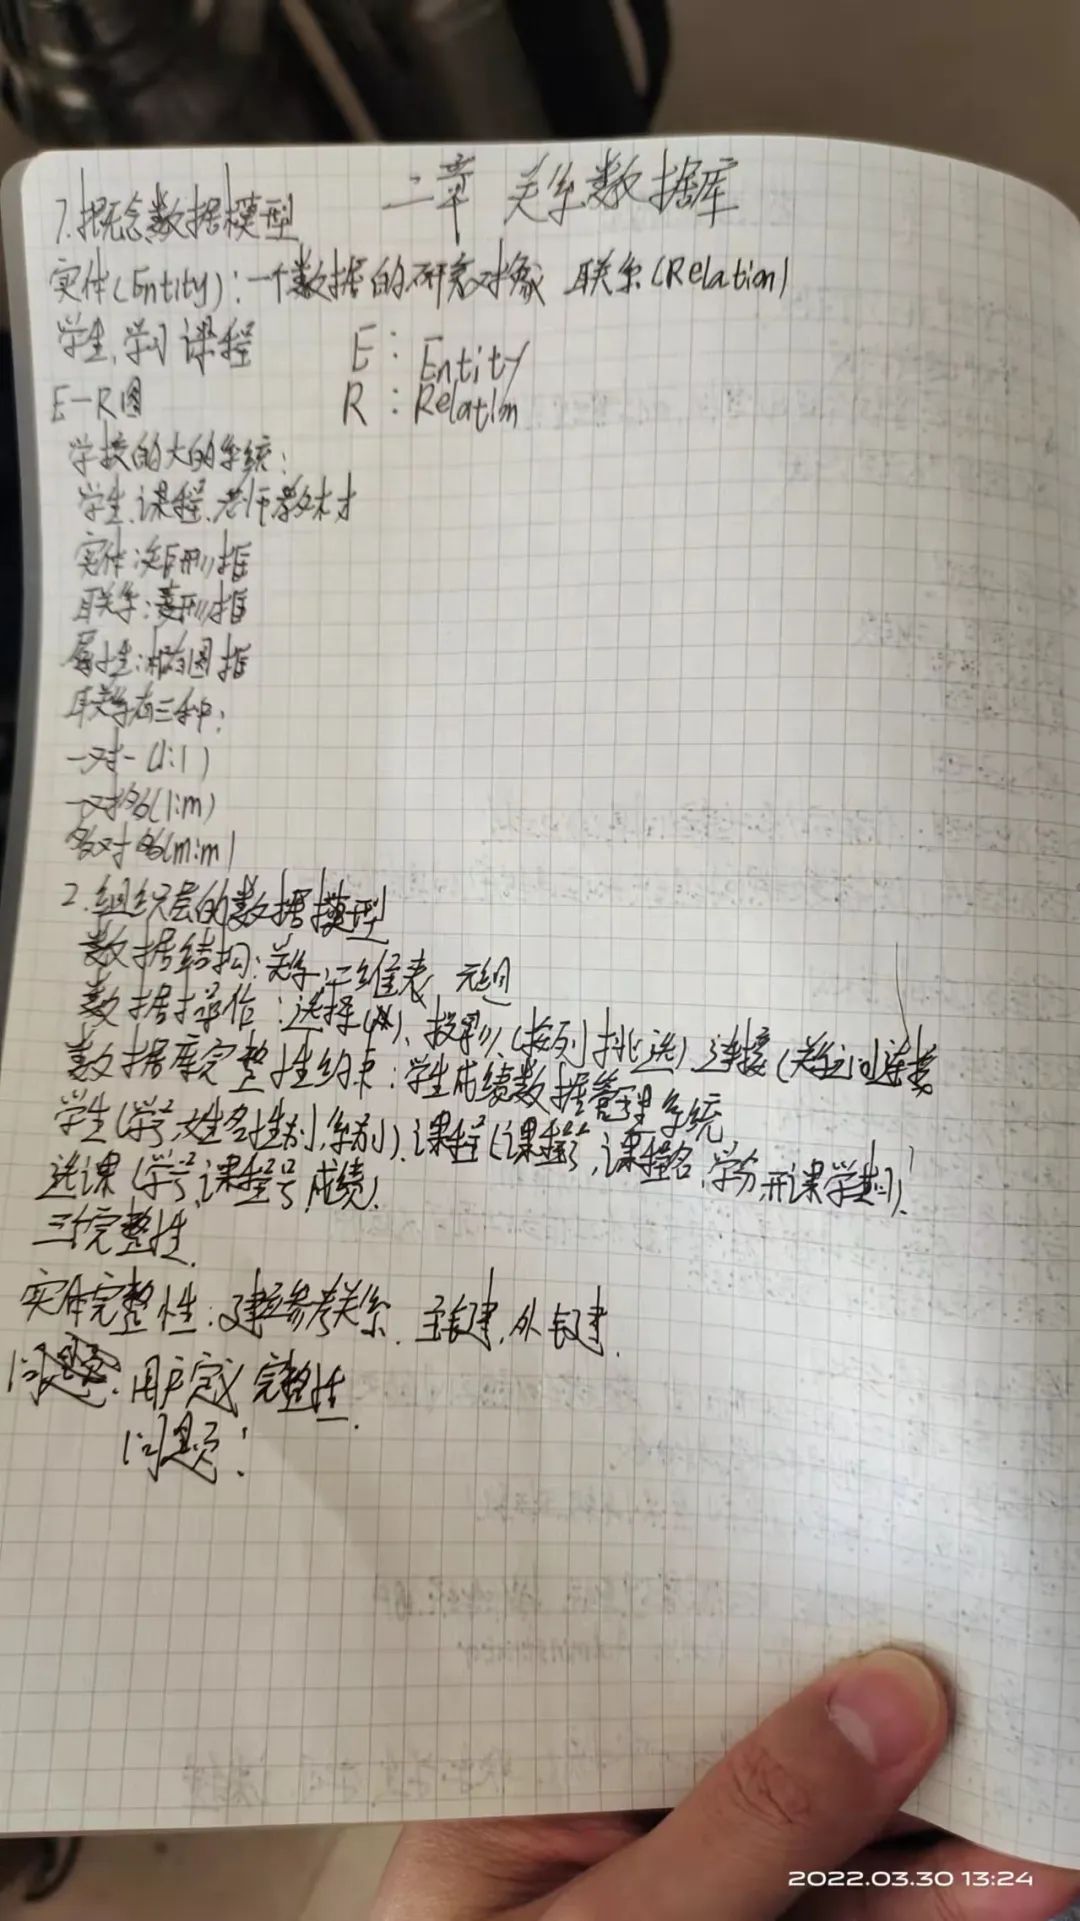 二章 关系数据库
1.概念数据模型
实体(Entity):一个数据的研究对象 联系(Relation)
学生,学习 课程
E:Entity
E-R图
R:Relation
学校的大的系统:
学生、课程、老师教材
实体:矩形框
联系:菱形框
属性:椭圆框
联系有三种:
一对一(1:1)
一对多(1:m)
多对多(m:m)
2.组织层的数据模型
数据结构:关系,二维表,元组
数据操作:选择(),投影(按列挑选),连接(关系间连接
数据库完整性约束:学生成绩数据管理系统
学生(学号,姓名,性别,系别),课程(课程号,课程名,学分,开课学期),
选课(学号,课程号,成绩).
三个完整性
实体完整性:建立参考关系.主键,外键.
用户定义完整性.
问题:
2022.03.30 13:24